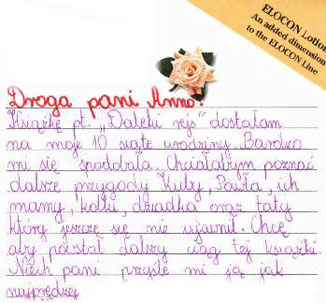 ELOCON Lotion
An added dimension
to the ELOCON Line
Droga pani Anno!
Książkę pt. „Daleki rejs" dostałam
na moje 10 siąte urodziny. Bardzo
mi się spodobała. Chciałabym poznać
dalsze przygody Kuby, Pawła, ich
mamy, kotki, dziadka oraz taty
który jeszcze się nie ujawnił. Chcę
aby powstał dalszy ciąg tej książki.
Niech pani przyśle mi ją jak
najprędzej